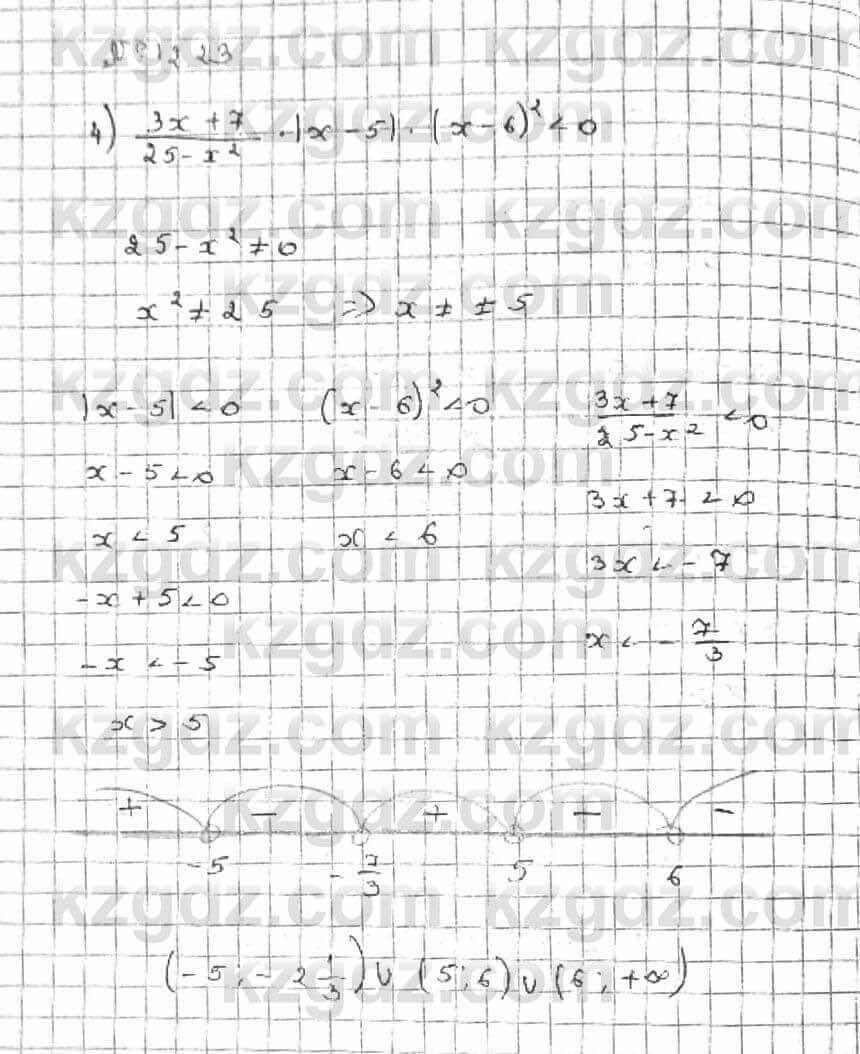 № 1223
4) (3x + 7)/(25 - x²) · |x - 5| · (x - 6)² < 0
25 - x² ≠ 0
x² ≠ 25 => x ≠ ± 5
|x - 5| < 0
x - 5 < 0
x < 5
-x + 5 < 0
-x < -5
x > 5
(x - 6)² < 0
x - 6 < 0
x < 6
(3x + 7)/(25 - x²) < 0
3x + 7 < 0
3x < - 7
x < - 7/3
+ - + - -
-5 - 7/3 5 6
(-5 ; - 2 1/3) ∪ (5 ; 6) ∪ (6 ; +∞)
kzgdz.com